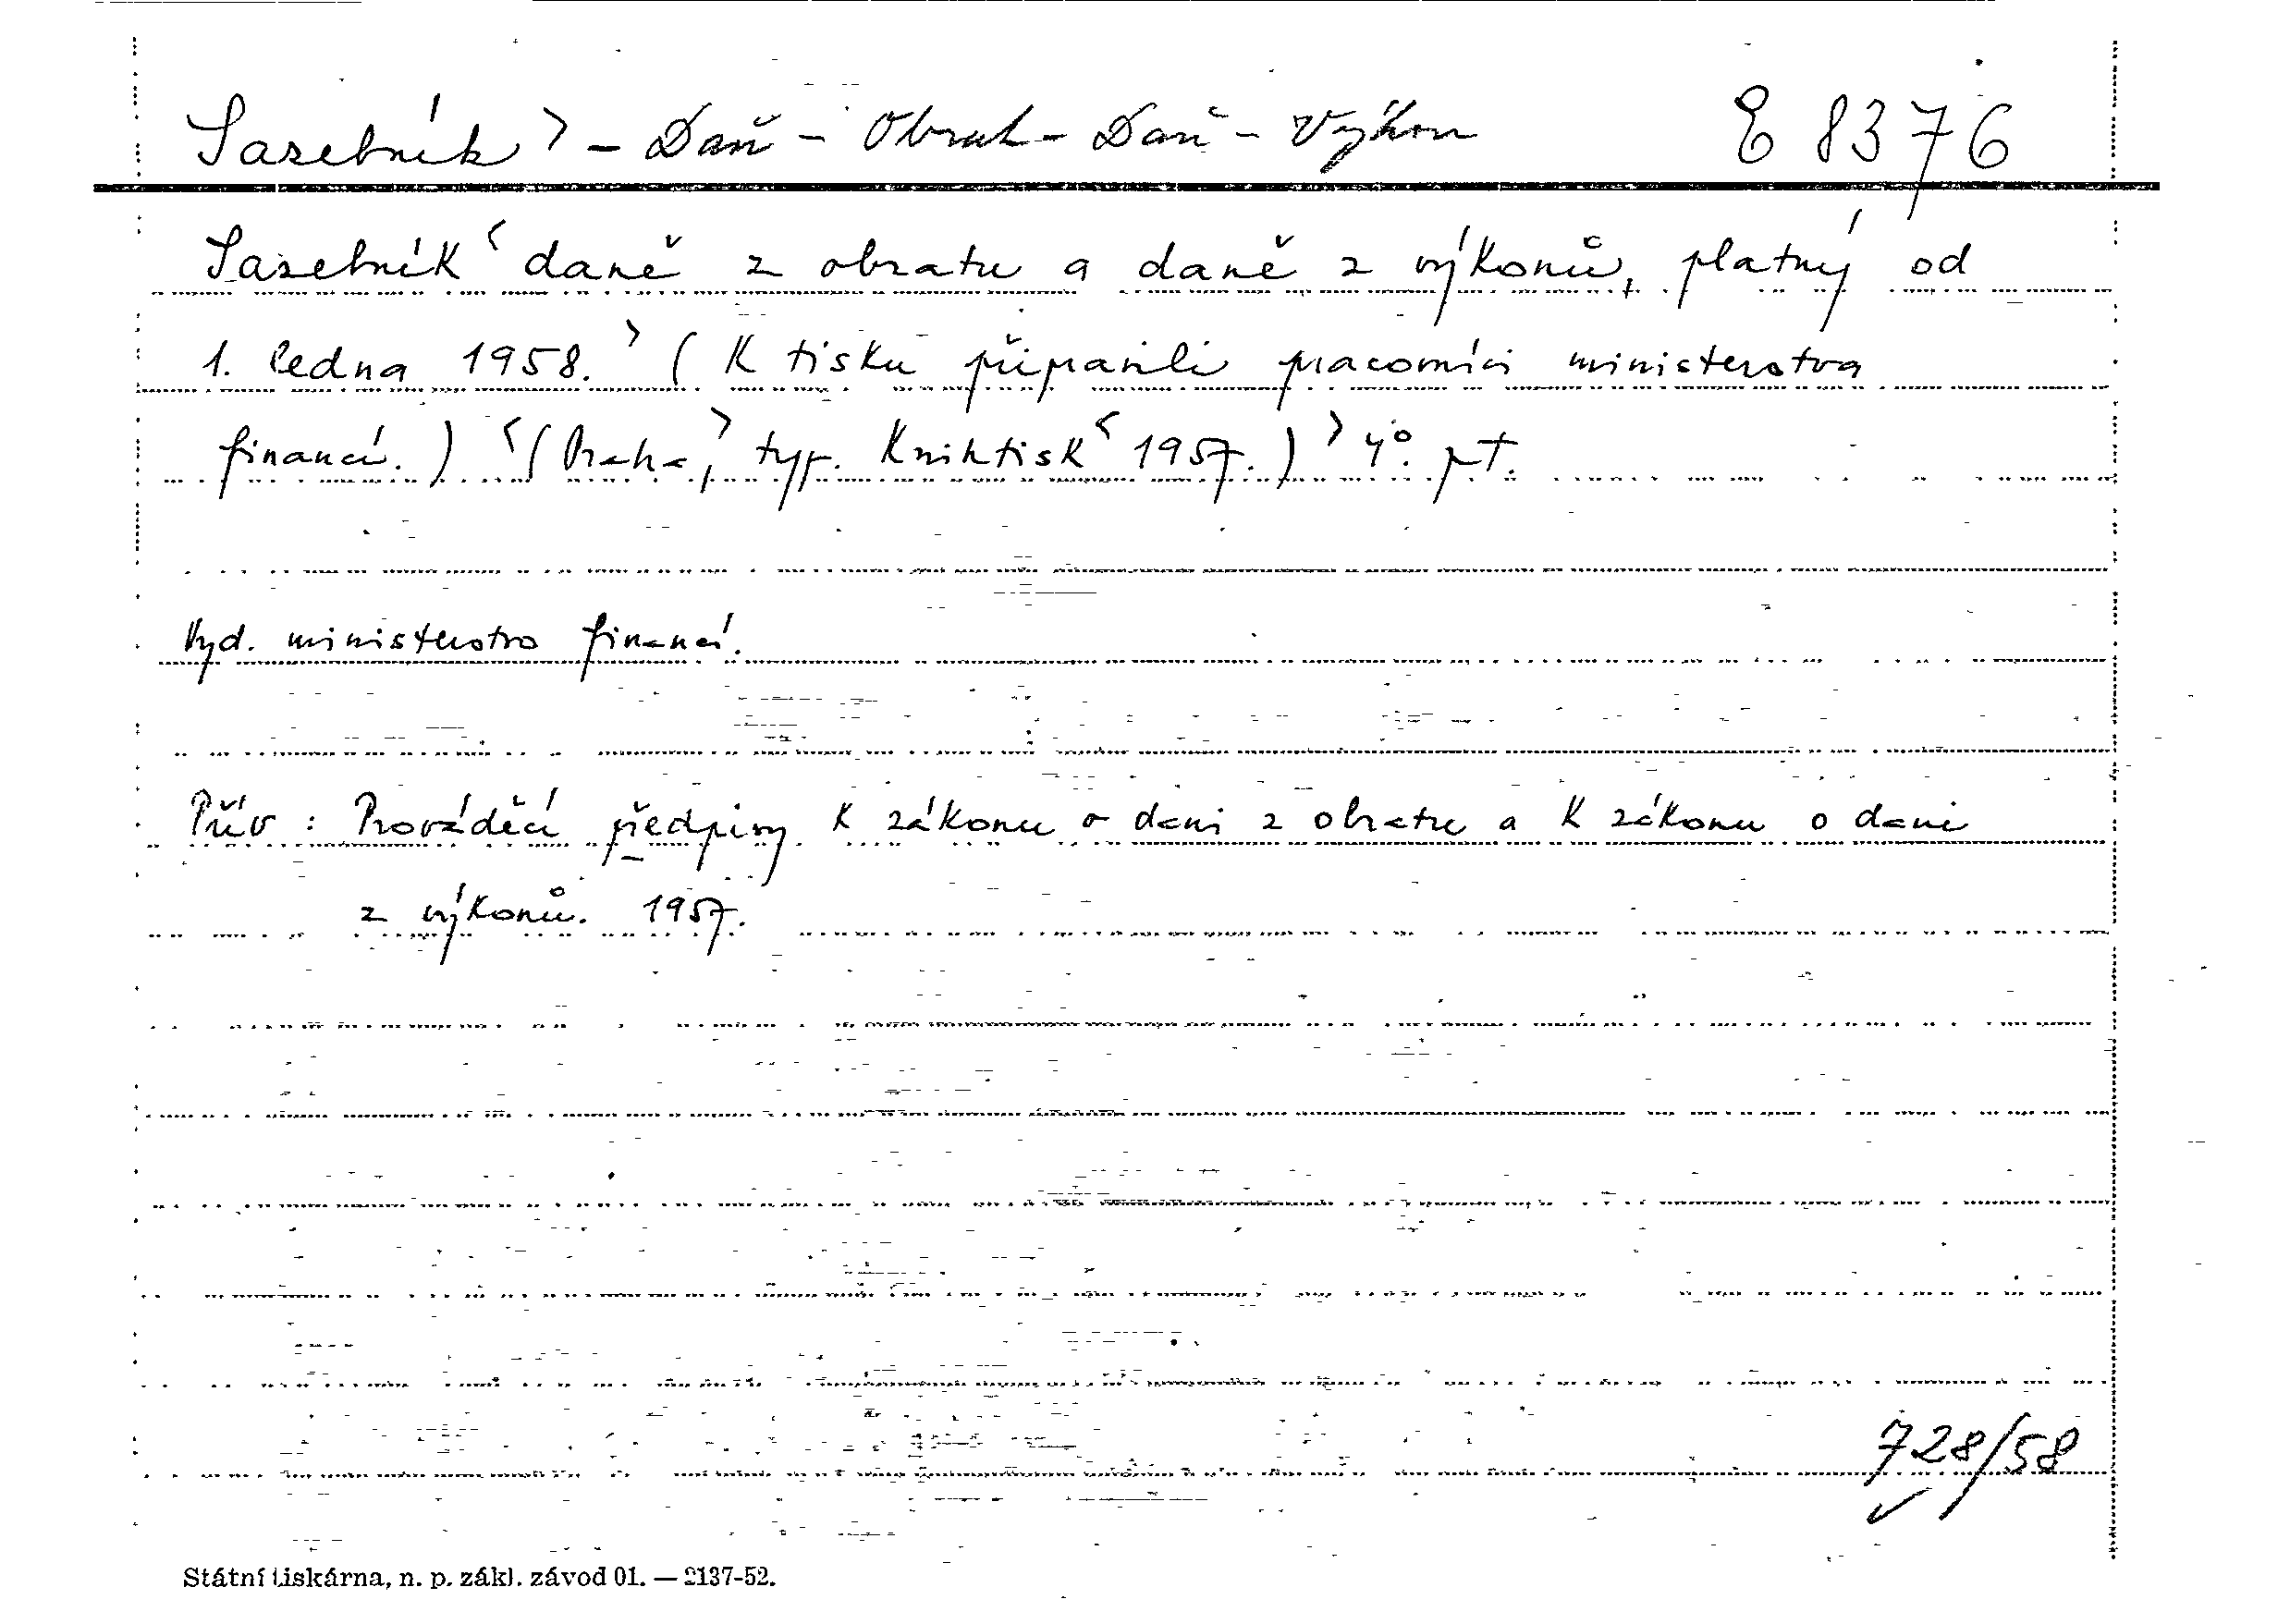 Sazebník > - Daň - Obrat - Daň - Výkon E 8376
Sazebník < daně z obratu a daně z výkonů, platný od
1. ledna 1958. > ( K tisku připravili pracovníci ministerstva
financí. ) < (Praha, > typ. Knihtisk < 1957. ) > 4°. pt.
Vyd. ministerstvo financí.
Přív : Prováděcí předpisy K zákonu o dani z obratu a K zákonu o dani
z výkonů. 1957.
728/58
Státní tiskárna, n. p. zákl. závod 01. — 2137-52.